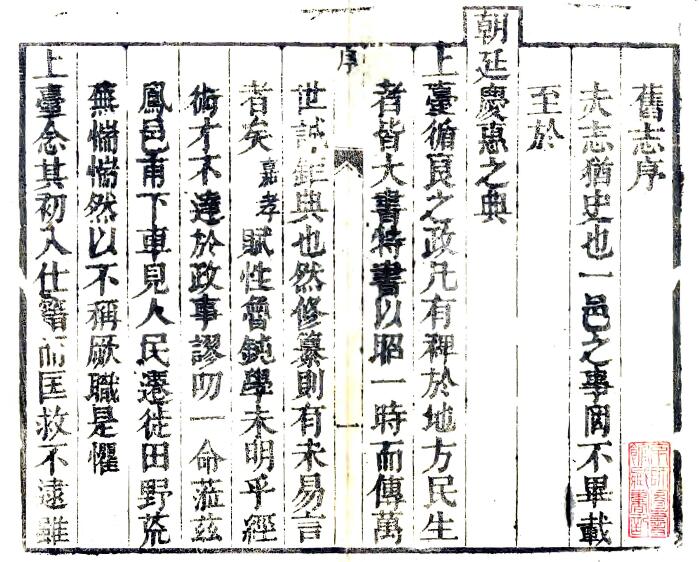 舊志序
夫志猶史也一邑之事罔不畢載
至於
朝廷慶惠之典
上臺循良之政凡有裨於地方民生
者皆大書特書以昭一時而傳萬
序
一
世誠鉅典也然修纂則有未易言
者矣嘉孝賦性魯鈍學未明乎經
術才不達於政事謬叨一命蒞茲
鳳邑甫下車見人民遷徙田野荒
蕪惴惴然以不稱厥職是懼
上臺念其初入仕籍而匡救不逮雖